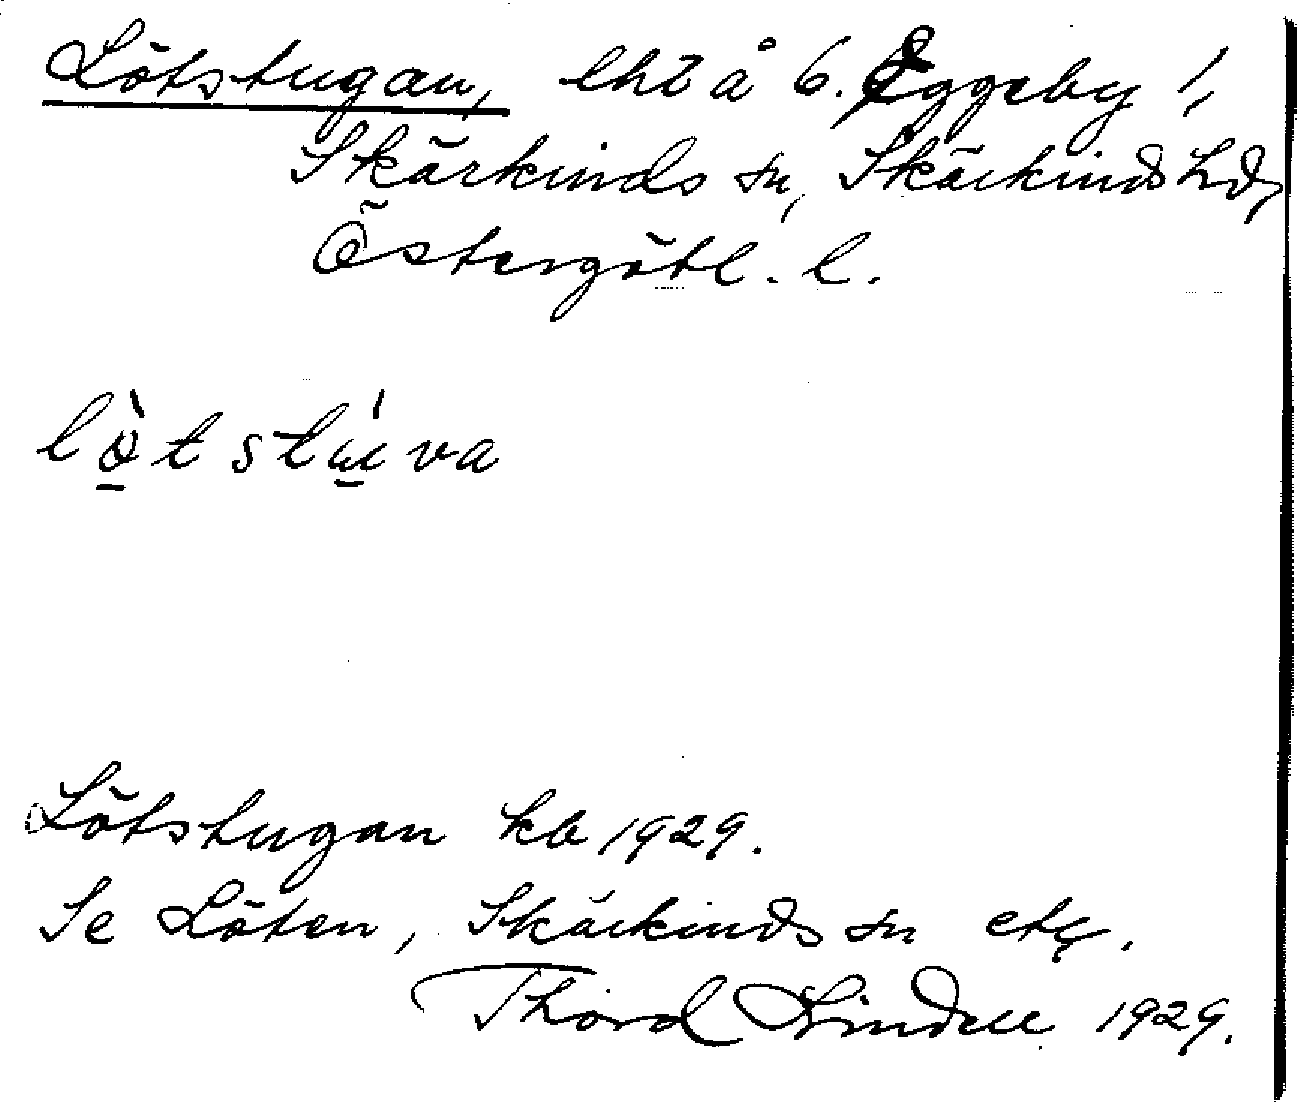 Lötstugan, lht å 6. Eggeby 1,
Skärkinds sn, Skärkinds hd,
Östergötl. l.
lø̀tstu̇́va
Lötstugan kb 1929.
Se Löten, Skärkinds sn etc.
Thord Lindell 1929.